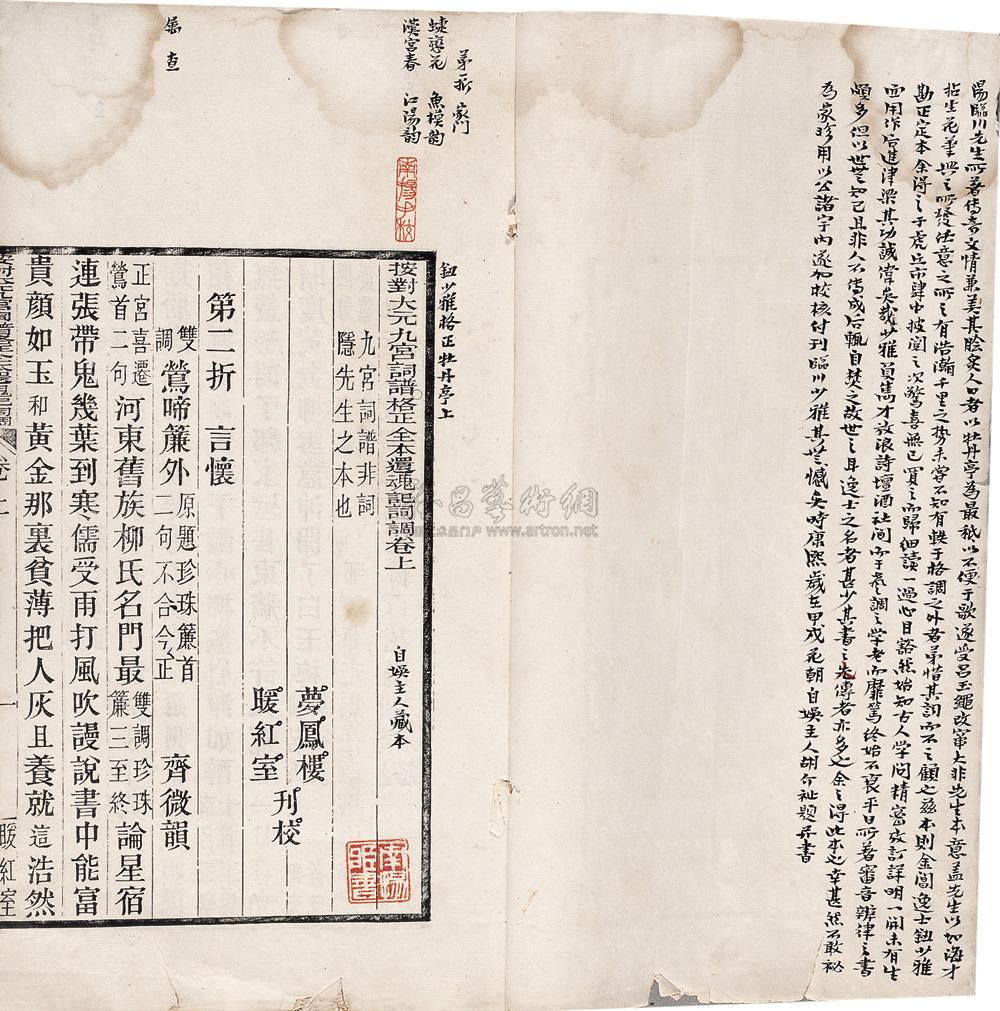 湯臨川先生所著傳奇文情兼美其膾炙人口者以牡丹亭為最祇以不便于歌遂受呂玉繩改竄大非先生本意蓋先生以如海才
拈生花筆興之所發任意之所之有浩瀚千里之勢未嘗不知有軼于格調之外者第惜其詞而不之顧也茲本則金閶逸士鈕少雅
勘正定本余得之于虎丘市肆中披閱之次驚喜無已買之而歸細讀一過心目豁然始知古人學問精密攷訂詳明一開未有生
面用作后進津梁其功誠偉矣哉少雅負雋才放浪詩壇酒社間而于音調之學老而靡篤終始不衰平日所著審音辨律之書
頗多但以世無知己且非人不傳成后輒自焚之故世之耳逸士之名者甚少其書之失傳者亦多也余之得此本也幸甚然不敢祕
為家珍用以公諸宇內遂加校核付刊臨川少雅其無憾矣時康熙歲在甲戌花朝自娛主人胡介祉題并書
鈕少雅格正牡丹亭上
自娛主人藏本
家門
蝶戀花 魚模韵
漢宮春 江陽韵
查
按對大元九宮詞譜格正全本還魂記詞調卷上
九宮詞譜非詞
隱先生之本也
夢鳳樓
暖紅室
刊校
第二折 言懷
齊微韻
雙調 鶯啼簾外 原題珍珠簾首二句不合今正
正宮喜遷鶯首二句 河東舊族柳氏名門最 雙調珍珠簾三至終 論星宿
連張帶鬼幾葉到寒儒受雨打風吹謾說書中能富
貴顏如玉和黃金那裏貧薄把人灰且養就這浩然
暖紅室
南陽
www.artron.net